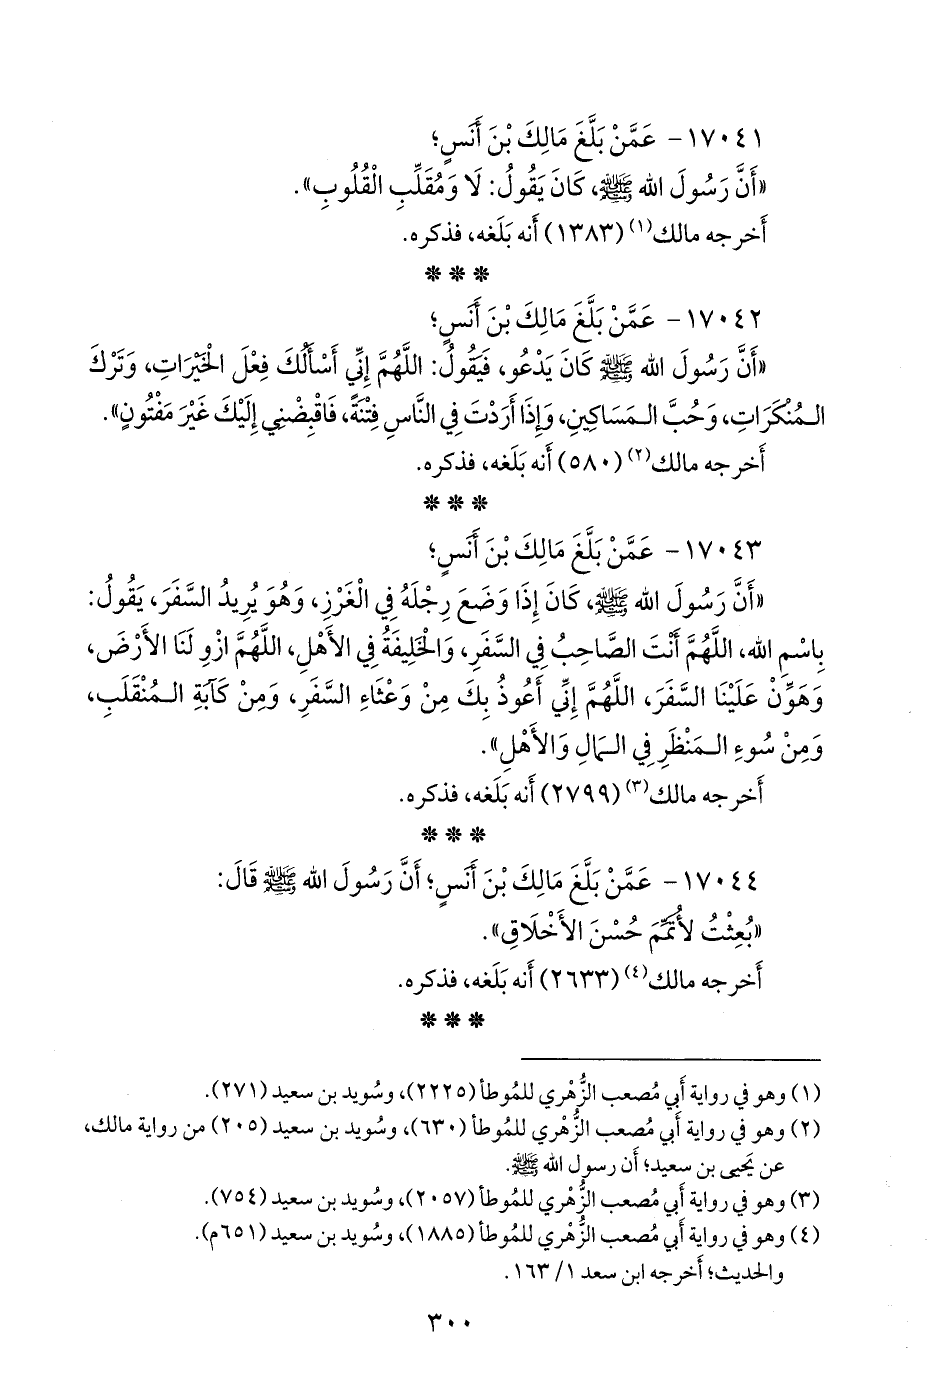 ١٧٠٤١- عَمَّنْ بَلَّغَ مَالِكَ بْنَ أَنَسٍ؛
«أَنَّ رَسُولَ الله ﷺ، كَانَ يَقُولُ: لَا وَمُقَلِّبِ الْقُلُوبِ».
أَخرجه مالك(١) (١٣٨٣) أَنه بَلَغه، فذكره.
***
١٧٠٤٢- عَمَّنْ بَلَّغَ مَالِكَ بْنَ أَنَسٍ؛
«أَنَّ رَسُولَ الله ﷺ كَانَ يَدْعُو، فَيَقُولُ: اللَّهُمَّ إِنِّي أَسْأَلُكَ فِعْلَ الْخَيْرَاتِ، وَتَرْكَ
الـمُنْكَرَاتِ، وَحُبَّ الـمَسَاكِينِ، وَإِذَا أَرَدْتَ فِي النَّاسِ فِتْنَةً، فَاقْبِضْنِي إِلَيْكَ غَيْرَ مَفْتُونٍ».
أَخرجه مالك(٢) (٥٨٠) أَنه بَلَغه، فذكره.
***
١٧٠٤٣- عَمَّنْ بَلَّغَ مَالِكَ بْنَ أَنَسٍ؛
«أَنَّ رَسُولَ الله ﷺ، كَانَ إِذَا وَضَعَ رِجْلَهُ فِي الْغَرْزِ، وَهُوَ يُرِيدُ السَّفَرَ، يَقُولُ:
بِاسْمِ الله، اللَّهُمَّ أَنْتَ الصَّاحِبُ فِي السَّفَرِ، وَالْخَلِيفَةُ فِي الأَهْلِ، اللَّهُمَّ ازْوِ لَنَا الأَرْضَ،
وَهَوِّنْ عَلَيْنَا السَّفَرَ، اللَّهُمَّ إِنِّي أَعُوذُ بِكَ مِنْ وَعْثَاءِ السَّفَرِ، وَمِنْ كَآبَةِ الـمُنْقَلَبِ،
وَمِنْ سُوءِ الـمَنْظَرِ فِي الـمَالِ وَالأَهْلِ».
أَخرجه مالك(٣) (٢٧٩٩) أَنه بَلَغه، فذكره.
***
١٧٠٤٤- عَمَّنْ بَلَّغَ مَالِكَ بْنَ أَنَسٍ؛ أَنَّ رَسُولَ الله ﷺ قَالَ:
«بُعِثْتُ لأُتَمِّمَ حُسْنَ الأَخْلَاقِ».
أَخرجه مالك(٤) (٢٦٣٣) أَنه بَلَغه، فذكره.
***
(١) وهو في رواية أَبي مُصعب الزُّهْري للمُوطأ (٢٢٢٥)، وسُويد بن سعيد (٢٧١).
(٢) وهو في رواية أَبي مُصعب الزُّهْري للمُوطأ (٦٣٠)، وسُويد بن سعيد (٢٠٥) من رواية مالك،
عن يَحيى بن سعيد؛ أَن رسول الله ﷺ.
(٣) وهو في رواية أَبي مُصعب الزُّهْري للمُوطأ (٢٠٥٧)، وسُويد بن سعيد (٧٥٤).
(٤) وهو في رواية أَبي مُصعب الزُّهْري للمُوطأ (١٨٨٥)، وسُويد بن سعيد (٦٥١م).
والحديث؛ أَخرجه ابن سعد ١/ ١٦٣.
٣٠٠